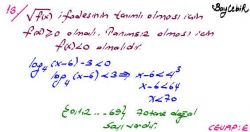 13/ √f(x) ifadesinin tanımlı olması için
f(x)≥0 olmalı. Tanımsız olması için
f(x)<0 olmalıdır.
log₄(x-6)-3<0
log₄(x-6)<3 ⇒ x-6<4³
x-6<64
x<70
tane doğal
sayı vardır.
CEVAP: E